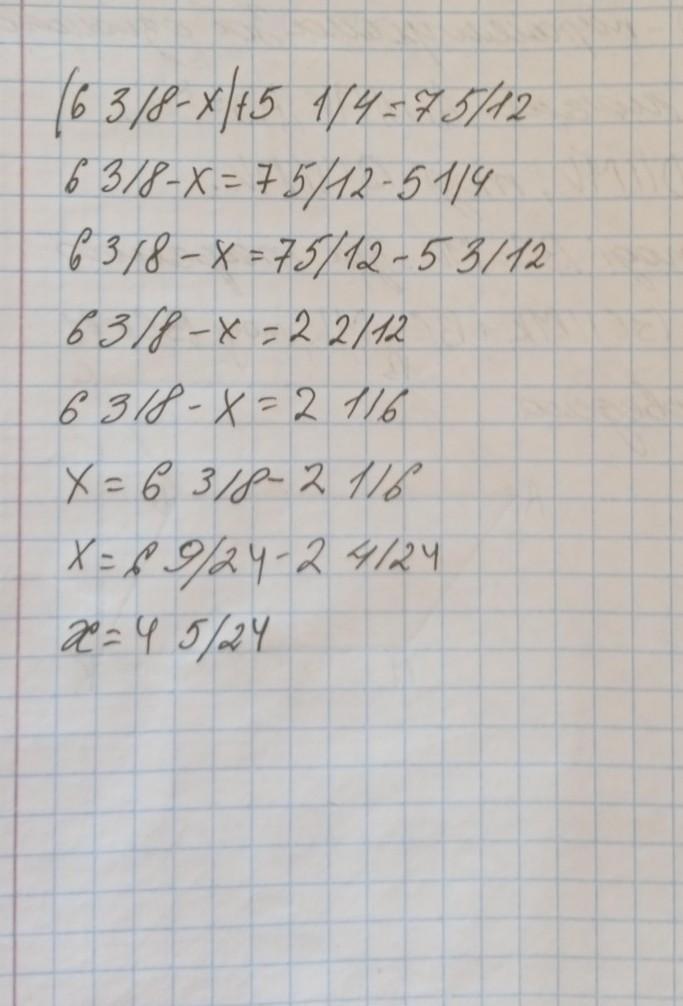 (6 3/8-x)+5 1/4=7 5/12
6 3/8-x=7 5/12-5 1/4
6 3/8-x=7 5/12-5 3/12
6 3/8-x=2 2/12
6 3/8-x=2 1/6
x=6 3/8-2 1/6
x=6 9/24-2 4/24
x=4 5/24